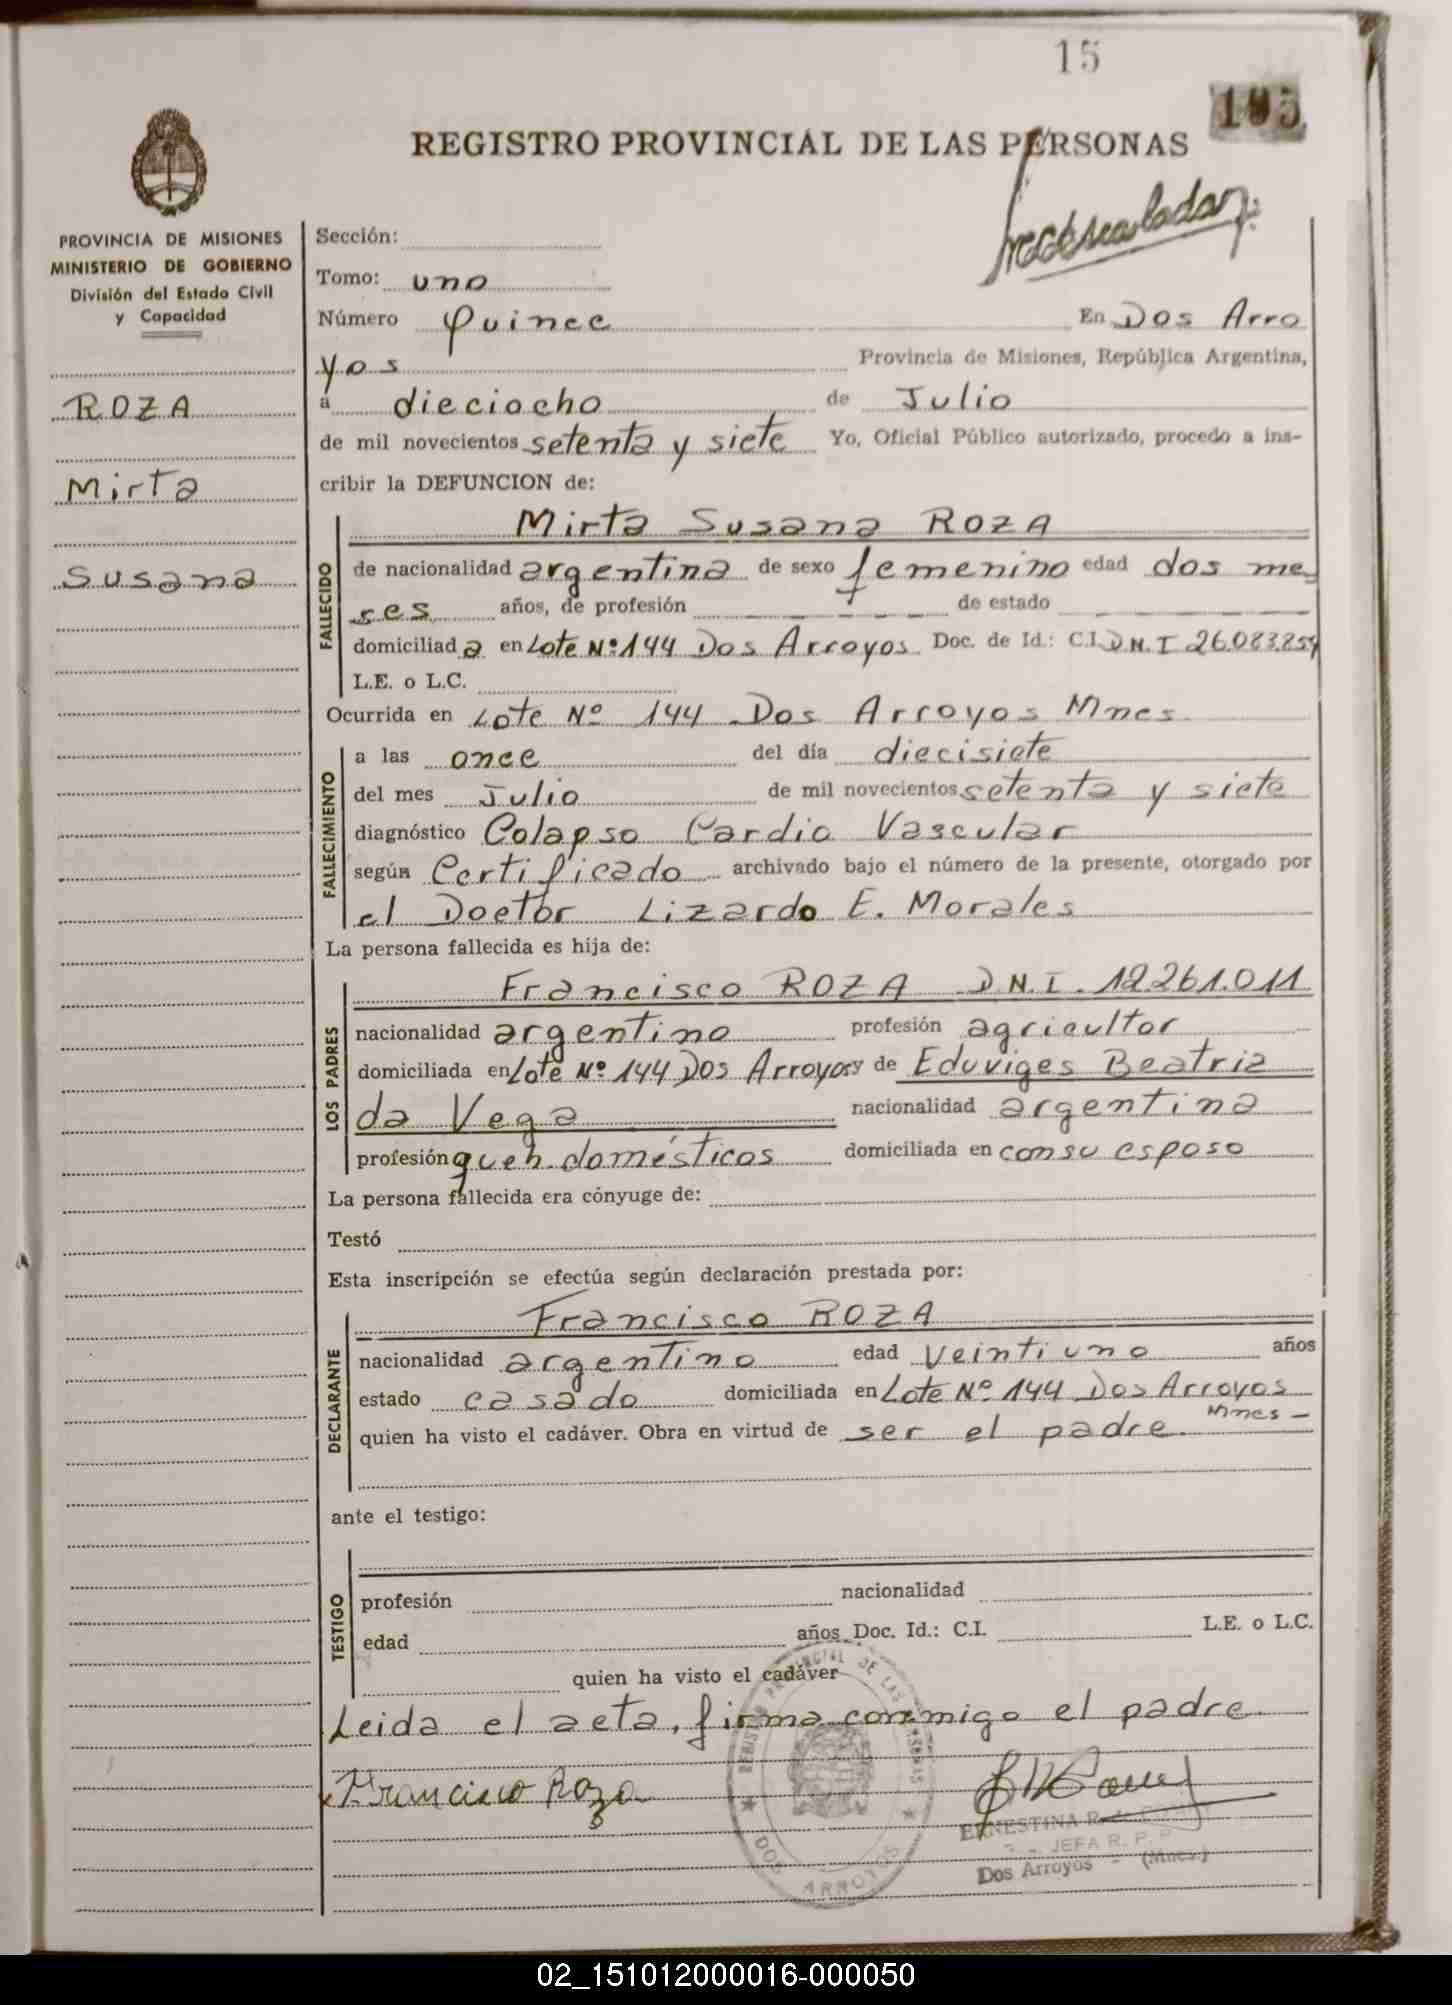 15
REGISTRO PROVINCIAL DE LAS PERSONAS
PROVINCIA DE MISIONES
MINISTERIO DE GOBIERNO
División del Estado Civil
y Capacidad
ROZA
Mirta
Susana
Sección:
Tomo: uno
Número Quince En Dos Arro
yos Provincia de Misiones, República Argentina,
a dieciocho de Julio
de mil novecientos setenta y siete Yo, Oficial Público autorizado, procedo a ins-
cribir la DEFUNCION de:
Mirta Susana ROZA
FALLECIDO
de nacionalidad argentina de sexo femenino edad dos me
ses años, de profesión de estado
domiciliada en Lote Nº 144 Dos Arroyos Doc. de Id.: C.I. D.N.I 26.083.859
L.E. o L.C.
Ocurrida en Lote Nº 144 Dos Arroyos Mnes
FALLECIMIENTO
a las once del día diecisiete
del mes Julio de mil novecientos setenta y siete
diagnóstico Colapso Cardio Vascular
según Certificado archivado bajo el número de la presente, otorgado por
el Doctor Lizardo E. Morales
La persona fallecida es hija de:
LOS PADRES
Francisco ROZA D.N.I. 12.261.011
nacionalidad argentino profesión agricultor
domiciliada en Lote Nº 144 Dos Arroyos y de Eduviges Beatriz
da Vega nacionalidad argentina
profesión queh. domésticos domiciliada en con su esposo
La persona fallecida era cónyuge de:
Testó
Esta inscripción se efectúa según declaración prestada por:
DECLARANTE
Francisco ROZA
nacionalidad argentino edad veintiuno años
estado casado domiciliada en Lote Nº 144 Dos Arroyos
Mnes -
quien ha visto el cadáver. Obra en virtud de ser el padre.
ante el testigo:
TESTIGO
profesión nacionalidad
edad años Doc. Id.: C.I. L.E. o L.C.
quien ha visto el cadáver
Leida el acta, firma conmigo el padre.
Francisco Roza
REGISTRO PROVINCIAL DE LAS PERSONAS
DOS ARROYOS
ERNESTINA R. de
JEFA R. P. P.
Dos Arroyos - (Mnes.)
02_151012000016-000050